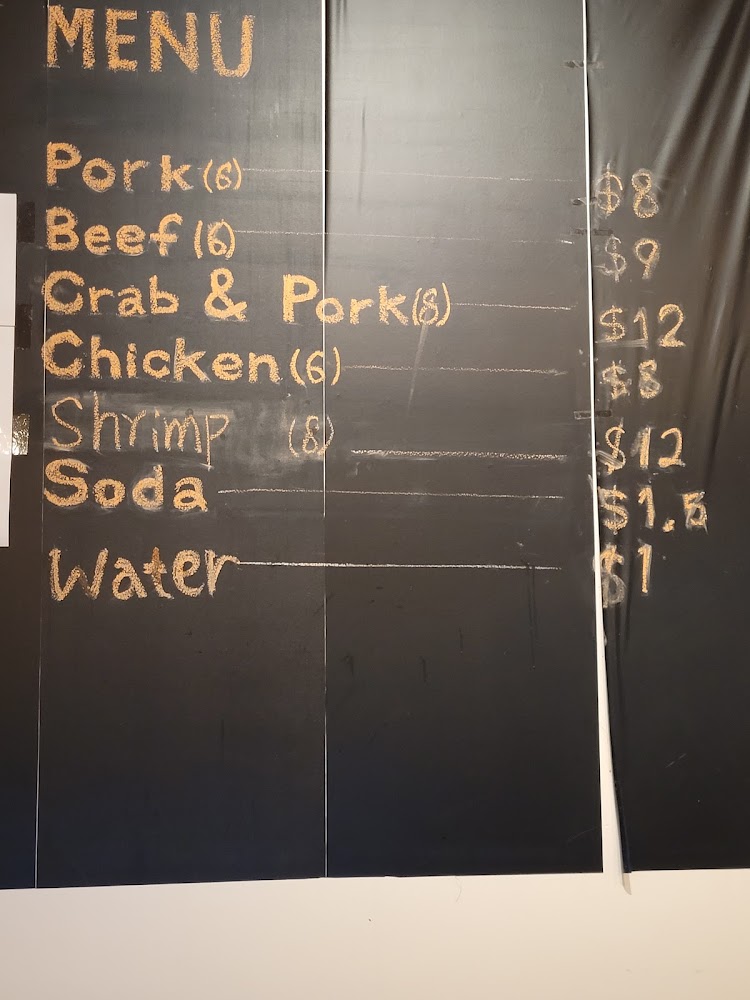 MENU
Pork (6) $8
Beef (6) $9
Crab & Pork (8) $12
Chicken (6) $8
Shrimp (8) $12
Soda $1.5
Water $1